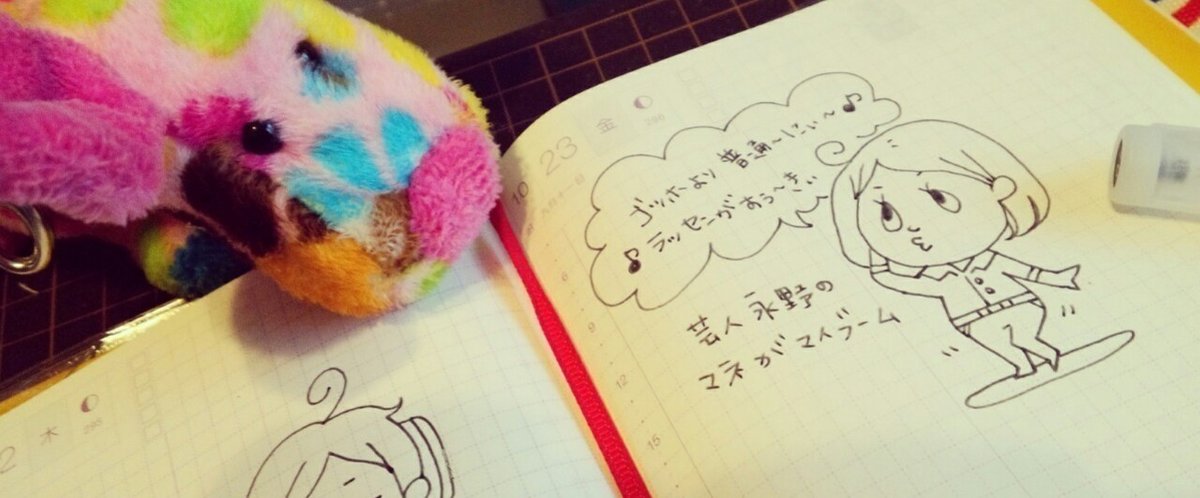 2 木
295
10 23 金
296
九月十一日
ゴッホより 普通〜にぃ〜♪
♪ラッセンがすぅ〜き
芸人 永野の
マネがマイブーム
6
9
12
15